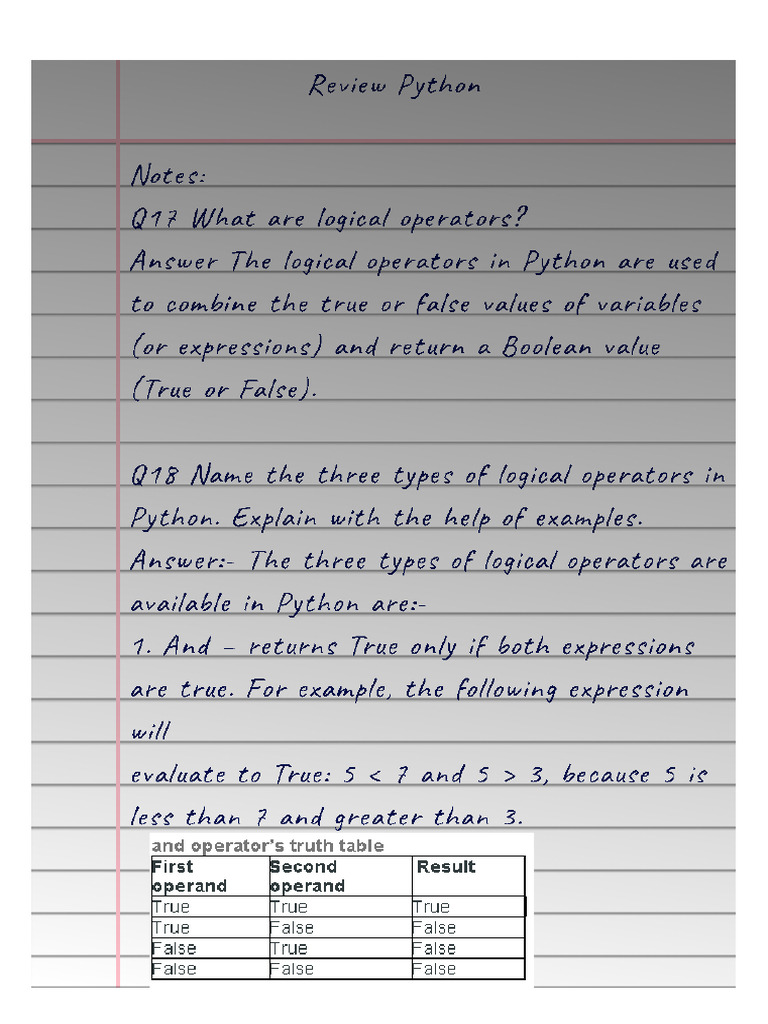 Review Python
Notes:
Q17 What are logical operators?
Answer The logical operators in Python are used
to combine the true or false values of variables
(or expressions) and return a Boolean value
(True or False).
Q18 Name the three types of logical operators in
Python. Explain with the help of examples.
Answer:- The three types of logical operators are
available in Python are:-
1. And – returns True only if both expressions
are true. For example, the following expression
will
evaluate to True: 5 < 7 and 5 > 3, because 5 is
less than 7 and greater than 3.
and operator's truth table
First operand Second operand Result
True True True
True False False
False True False
False False False